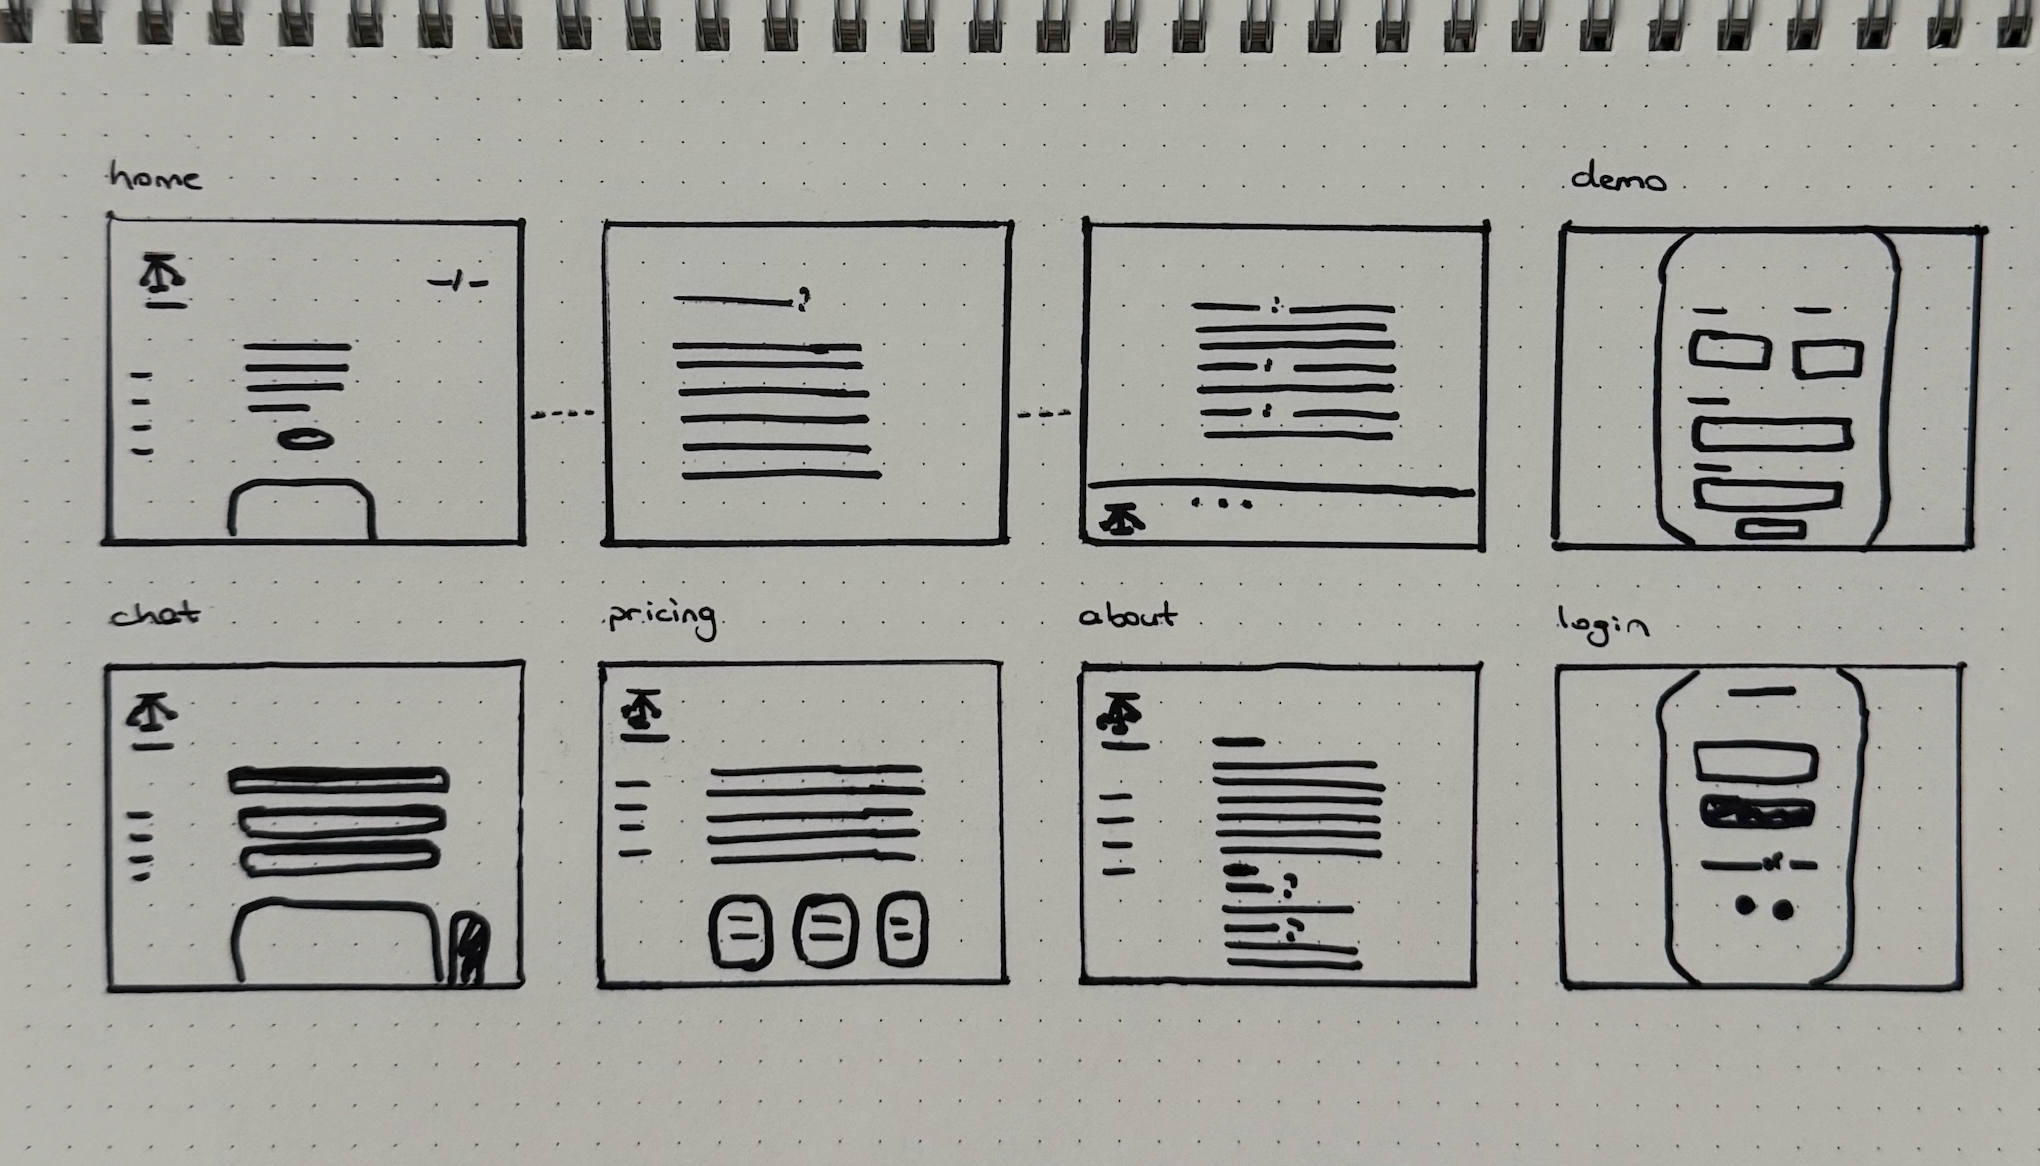 home
demo
?
chat
pricing
about
login
or
?
?